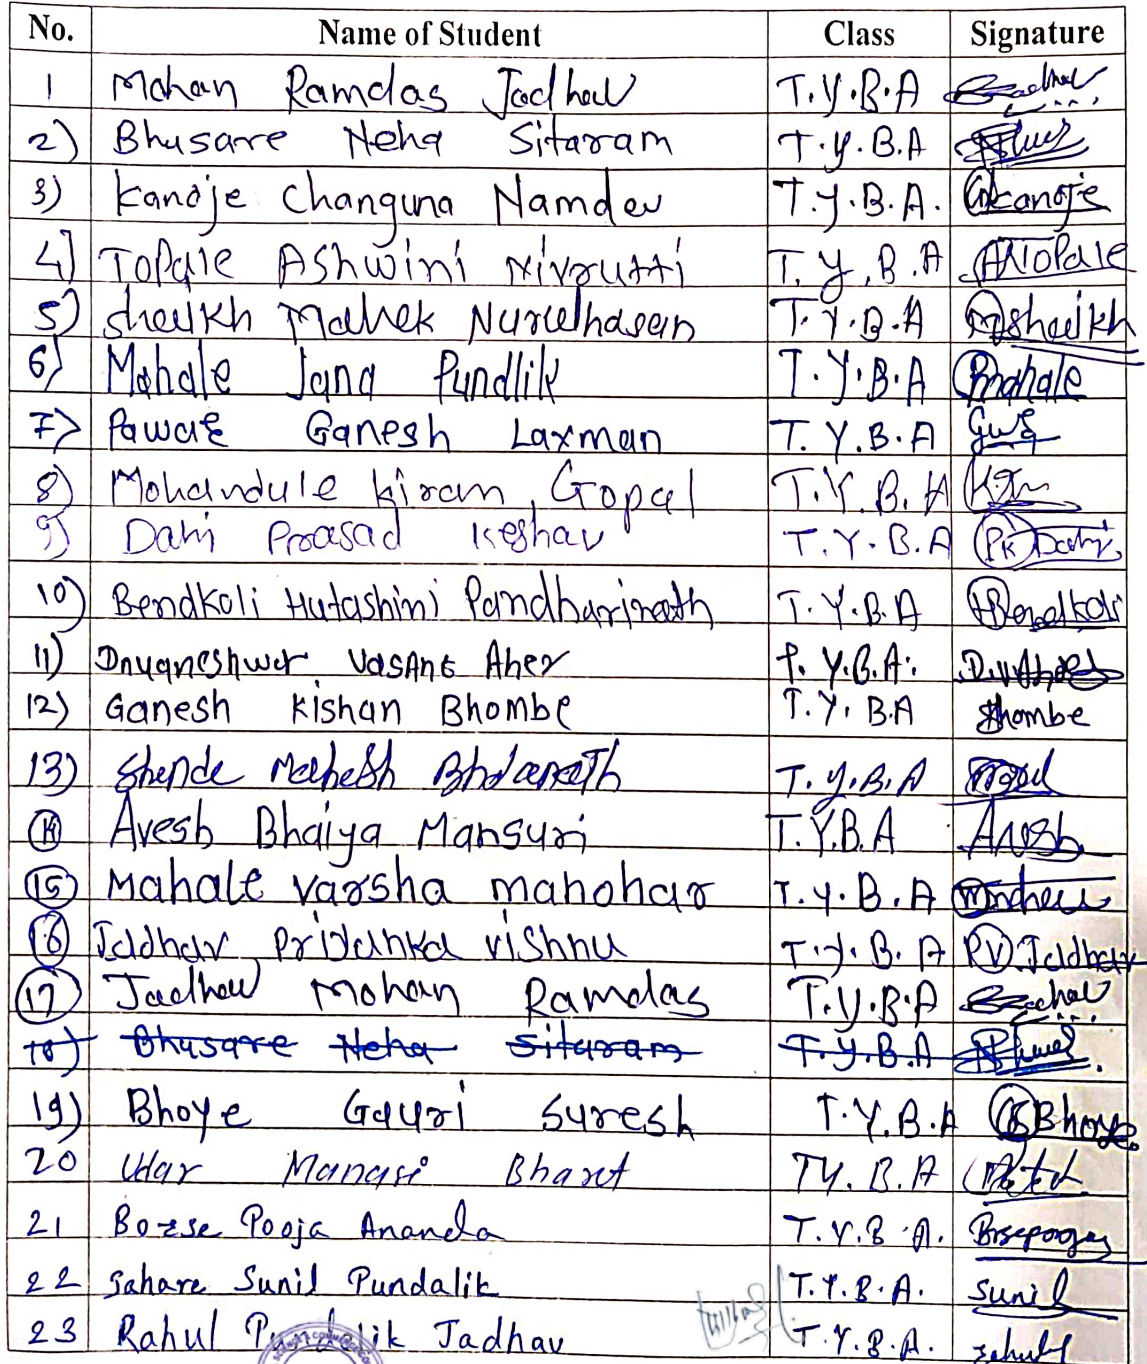 No. Name of Student Class Signature
1 Mohan Ramdas Jadhav T.Y.B.A Jadhav
2) Bhusare Neha Sitaram T.Y.B.A
3) Kanoje Changuna Namdev T.Y.B.A. Kanoje
4] Topale Ashwini Nivrutti T.Y.B.A Topale
5) Sheikh Mahek Nurulhasan T.Y.B.A Msheikh
6) Mahale Jana Pundlik T.Y.B.A Mahale
7) Pawar Ganesh Laxman T.Y.B.A
8) Mohandule Kiran Gopal T.Y.B.A
9) Dahi Prasad Keshav T.Y.B.A PK Dahi
10) Bendkoli Hutashini Pandharinath T.Y.B.A HBendkoli
11) Dnyaneshwar Vasant Aher T.Y.B.A.
12) Ganesh Kishan Bhombe T.Y.B.A Bhombe
13) Shende Mahesh Bholanath T.Y.B.A
14 Avesh Bhaiya Mansuri T.Y.B.A Avesh
15 Mahale Varsha Manohar T.Y.B.A
16 Jadhav Priyanka Vishnu T.Y.B.A PV Jadhav
17 Jadhav Mohan Ramdas T.Y.B.A Jadhav
18) Bhusare Neha Sitaram T.Y.B.A
19) Bhoye Gauri Suresh T.Y.B.A GSBhoye
20 Udar Manasi Bharat T.Y.B.A
21 Borse Pooja Ananda T.Y.B.A. Borsepooja
22 Sahare Sunil Pundalik T.Y.B.A. Sunil
23 Rahul Pundalik Jadhav T.Y.B.A. Rahul